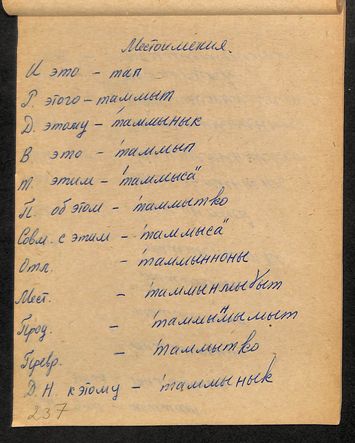 Местоимения.
И это – тап
Р. этого – таммыт
Д. этому – 'таммынык
В это – 'таммып
Т. этим – 'таммыса"
П. об этом – 'таммытко
Совм. с этим – 'таммыса"
Отл. – 'таммынноны
Мест. –
Прод. –
Превр. – 'таммытко
Д.Н. к этому – 'таммынык
237